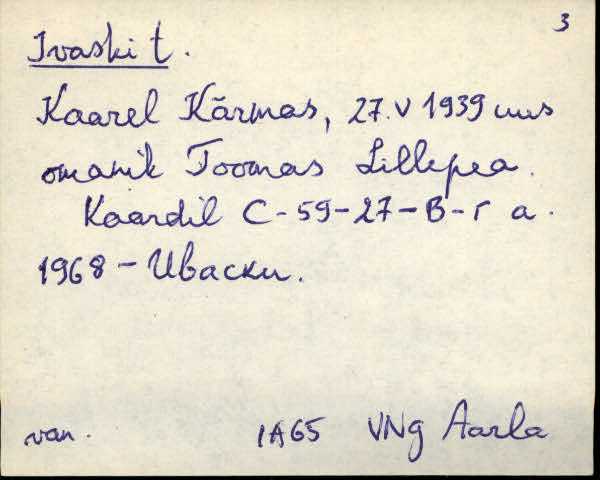 3
Ivaski t.
Kaarel Kärmas, 27. V 1939 uus
omanik Toomas Lillepea.
Kaardil C-59-27-B-г a.
1968 - Иваски.
van. 1A65 VNg Aarla